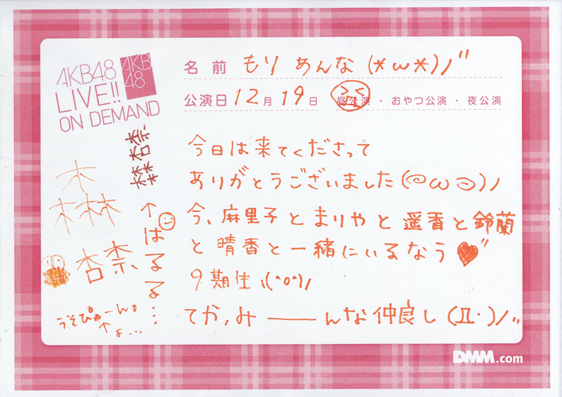 AKB48
LIVE!!
ON DEMAND
AKB
48
名前 もり めんな (*ω*)ノ"
公演日 12月19日 昼公演・おやつ公演・夜公演
今日は来てくださって
ありがとうございました(@ω@)ノ
今、麻里子とまりやと遥香と鈴蘭
と晴香と一緒にいるなう
9期生\(^o^)/
てか、み――んな仲良し(Д・)ノ"
森杏奈
↑はるる…
森
杏奈
うそぴょーん。
DMM.com